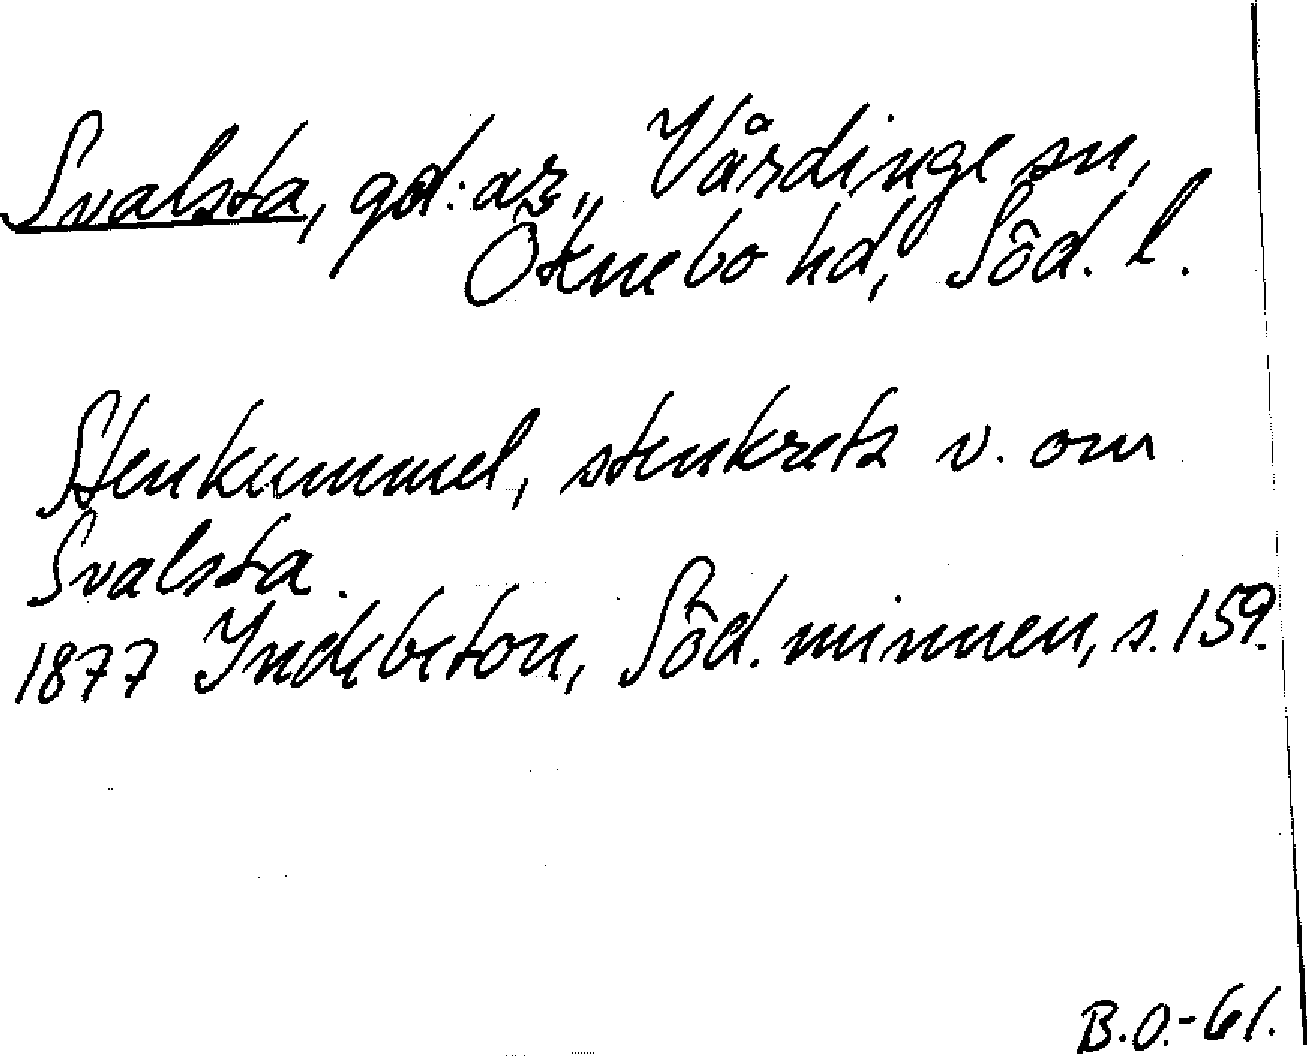 Svalsta, gd:ar, Vårdinge sn,
Öknebo hd, Söd. l.
Stenkummel, stenkrets v. om
Svalsta.
1877 Indebetou, Söd. minnen, s. 159.
B.O.-61.